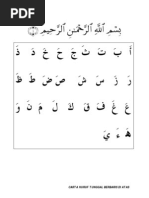 بِسْمِ ٱللَّهِ ٱلرَّحْمَـٰنِ ٱلرَّحِيمِ ١
أَ بَ تَ ثَ جَ حَ خَ دَ ذَ
رَ زَ سَ شَ صَ ضَ طَ ظَ
عَ غَ فَ قَ كَ لَ مَ نَ وَ
هَ ءَ يَ
CARTA HURUF TUNGGAL BERBARIS DI ATAS